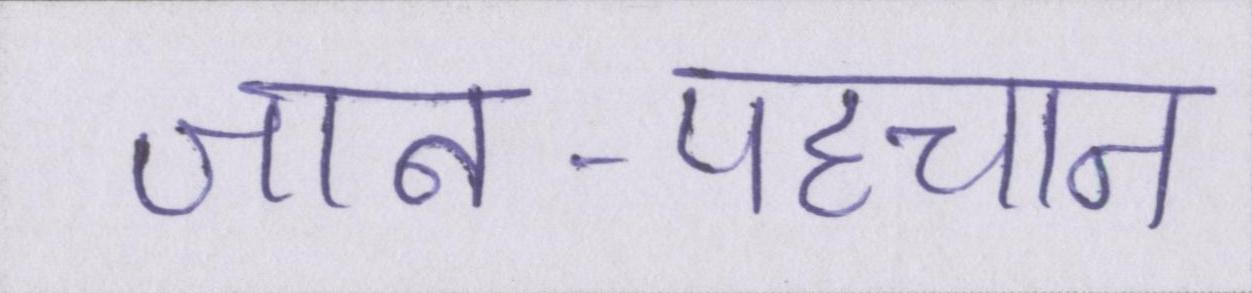 जान-पहचान